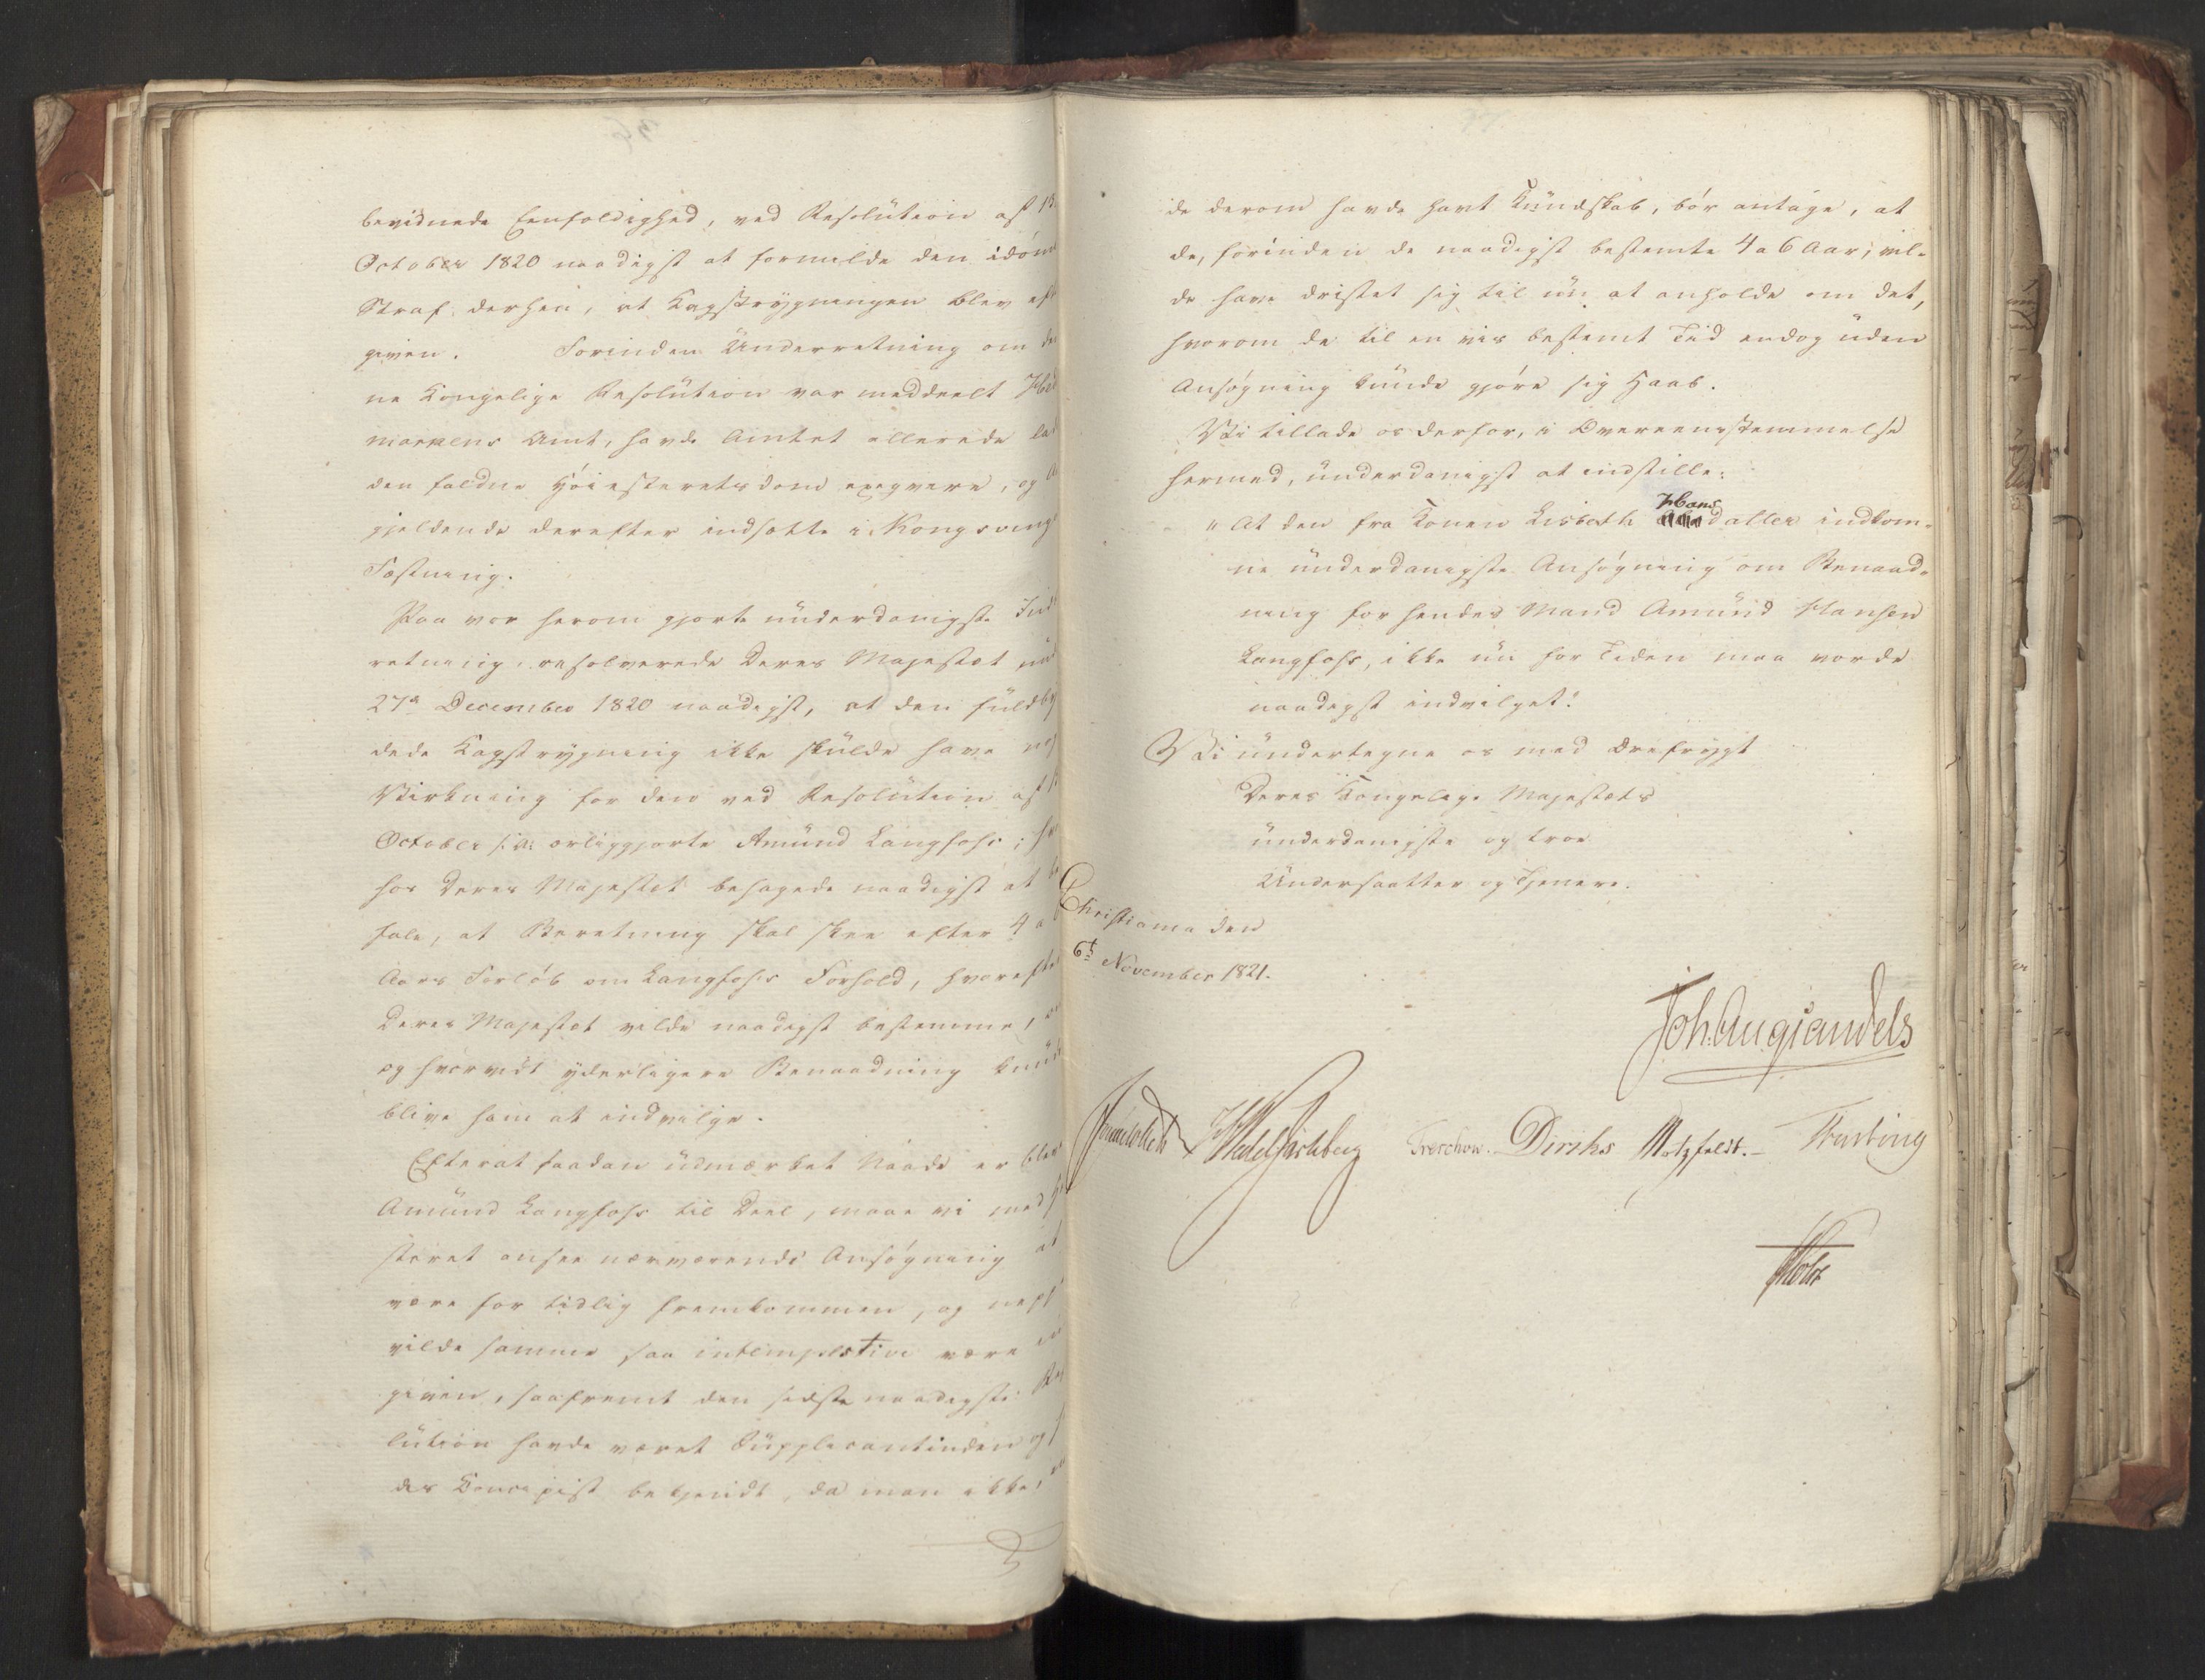 bevidnede Eenfoldighed, ved Resolution af 13
October 1820 naadigst at formilde den idøm
Straf derhen, at Kagstrygningen blev eft
given. Forinden Underretning om de
ne Kongelige Resolution var meddeelt Hede
markens Amt, havde Amtet allerede lad
den faldne Høiesteretsdom exeqvere, og
gjeldende derefter indsætte i Kongsving
Fæstning.
Paa vor herom gjorte underdanigste Ind
retning, resolverede Deres Majestæt und
27de December 1820 naadigst, at den fuldby
dede Kagstrygning ikke skulde have no
Virkning for den ved Resolution af 1
October s: A: ærliggjorte Amund Langfoss; h
hos Deres Majestæt behagede naadigst at be
fale, at Beretning skal skee efter 4 a 6
Aars Forløb om Langfoss Forhold, hvoreft
Deres Majestæt vilde naadigst bestemme,
og hvorvidt yderligere Benaadning kund
blive ham at indvilge.
Efterat saadan udmærket Naade er blev
Amund Langfoss til Deel, maae vi med H
steret ansee nærværende Ansøgning at
være for tidlig fremkommen, og neppe
vilde samme saa intempestive være in
given, saafremt den sidste naadigste Reso
lution havde været Supplicantinden og
des Concipist bekjendt, da man ikke,
de derom havde havt Kundskab, bør antage, at
de, forinden de naadigst bestemte 4 a 6 Aar, vil-
de have dristet sig til nu at anholde om det,
hvorom de til en vis bestemt Tid endog uden
Ansøgning kunde gjøre sig Haab.
Vi tillade os derfor, i Overeensstemmelse
hermed, underdanigst at indstille:
"At den fra Konen Lisbeth Hansdatter indkom-
ne underdanigste Ansøgning om Benaad-
ning for hendes Mand Amund Hansen
Langfoss, ikke nu for Tiden maa vorde
naadigst indvilget."
Vi undertegne os med Ærefrygt
Deres Kongelige Majestæts
underdanigste og troe
Undersaatter og Tjenere.
Christiania den
6t November 1821.
Joh: Aug: Sandels
Sommerhielm HWedelJarlsberg Treschow. Diriks Motzfeldt. Fasting
Holst